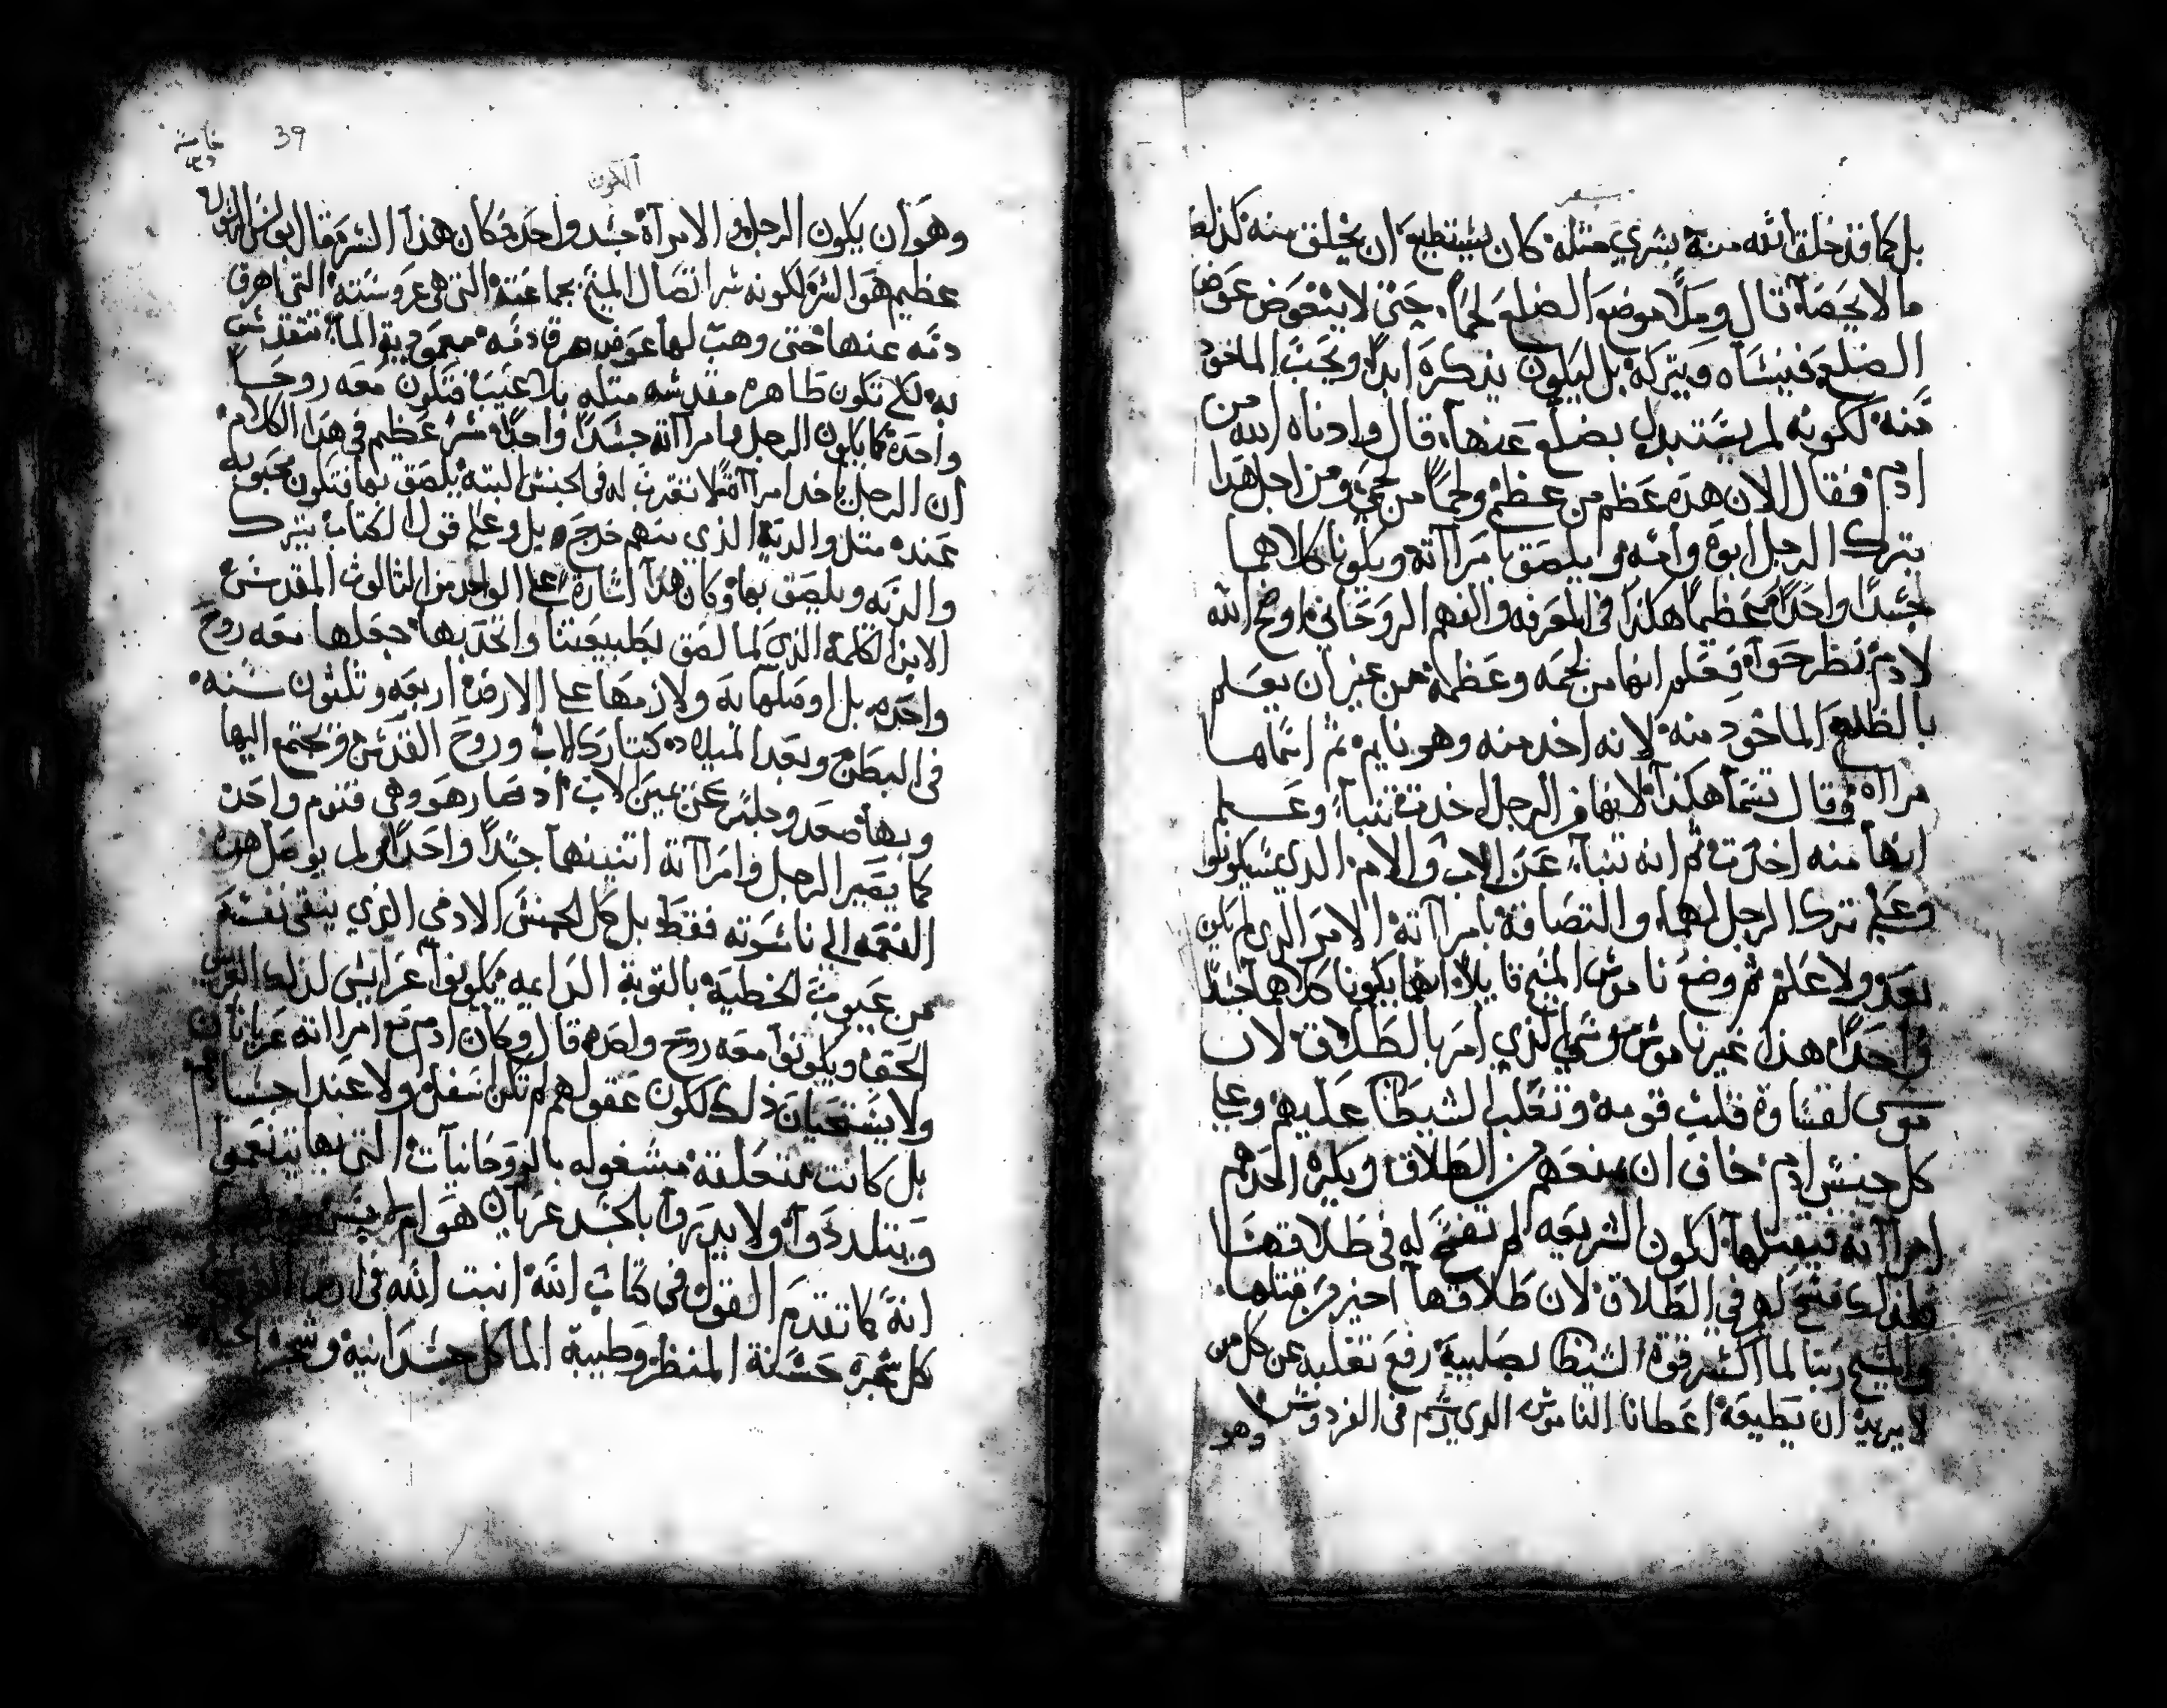 سفر
بل كما قد خلق الله منه بشري مثله كان يستطيع ان يخلق منه كذلك
ما لا يحصا قال وملا موضع الضلع لحما حتى لا يتعوض عوض
الضلع فينساه ويتركه بل ليكون يذكره ابدا ونحب الماخود
منه لكونه لم يستبدل بضلع عنها قال وادناه الله من
ادم فقال الان هده عظم من عظمي ولحما من لحمي ومن اجل هدا
يترك الرجل ابوه وامه ويلصق بامرااته ويكونا كلاهما
جسدا واحدا هكدا في المعرفه والفهم الروحاني اوضح الله
لادم نظر حوا فعلم انها من لحمه وعظمه من غير ان يعلم
بالظلع الماخود منه لانه اخد منه وهو نايم ثم اسماها
مرااه وقال تسما هكدا لانها من الرجل اخدت تنبا وعلم
انها منه اخدت ثم انه تنبا عن الاب والام الدي سيكونوا
وعلم ترك الرجل لهما والتصاقه بامرااته الامر الدي لم يكن
بعد ولا علم ثم وضع ناموس المسيح قايلا انهما يكونا كلاهما جسدا
واحدا هدا غير ناموس موسي الدي امر بالطلاق لان
موسى لقساوة قلب قومه وتغلب الشيطان عليهم وعلي
كل جنس ادم خاف ان يمنعهم من الطلاق ويكره احدهم
امرااته فيقتلها لكون الشريعه لم تفسح له في طلاقها
فلدلك فسح لهم في الطلاق لان طلاقها اخير من قتلها
والمسيح ربنا لما اكسر قوة الشيطان بصليبه رفع تغلبه عن كل من
لا يريد ان يطيعه اعطانا الناموس الدي رسم في الفردوس
وهو
خامسة
39
التكون
وهو ان يكون الرجل والامراة جسد واحد فكان هدا السر قال بولس الرسول
عظيم هو السر لكونه سر اتصال المسيح بجماعته التي هي عروسته التي اهرق
دمه عنها حتى وهب لها عوض هرق دمه معمودية الما تتقدس
به لكي تكون طاهره مقدسه مثله بلا عيب فتكون معه روحا
واحده كما يكون الرجل وامرااته جسدا واحدا سر عظيم في هدا الكلام
ان الرجل ياخد امرااة لا تقرب له في الجنس البته يلصق بها فتكون محبوبه
عنده مثل والديه الدي منهم خرج بل وعلى قول الكتاب يترك
والديه ويلصق بها وكان هدا اشارة على الواحد من الثالوث المقدس
الابن الكلمة الدي لما لصق بطبيعتنا واتحد بها جعلها معه روح
واحده بل اوصلها به ولازمها على الارض اربعه وثلثون سنه
في البطن وبعد الميلاد كنتارك الاب وروح القدس ويجتمع اليها
وبها صعد وجلس عن يمين الاب اد صار هو وهي قنوم واحد
كما يصير الرجل وامرااته اثنينهما جسدا واحدا ولم يوصل هده
النعمه الي ناسوته فقط بل كل الجنس الادمي الدي ينقي نفسه
من عيوب الخطيه بالتوبة الدايمه يكونوا عرايس لدلك العريس
الحق ويكونوا معه روح واحده قال وكان ادم مع امرااته عريانان
ولا يستحيان دلك لكون عقولهم لم تكن سفلي ولا عند اجسامهم
بل كانت متعلقة مشغوله بالروحانيات التي بها يتنعموا
ويتلددوا ولا يدروا بالجسد عريان هو ام لابس
انه كما تقدم القول في كتاب الله انبت الله في ارض الفردوس
كل شجره حسنة المنظر وطيبة الماكل جسدانيه وشجرة الحياه